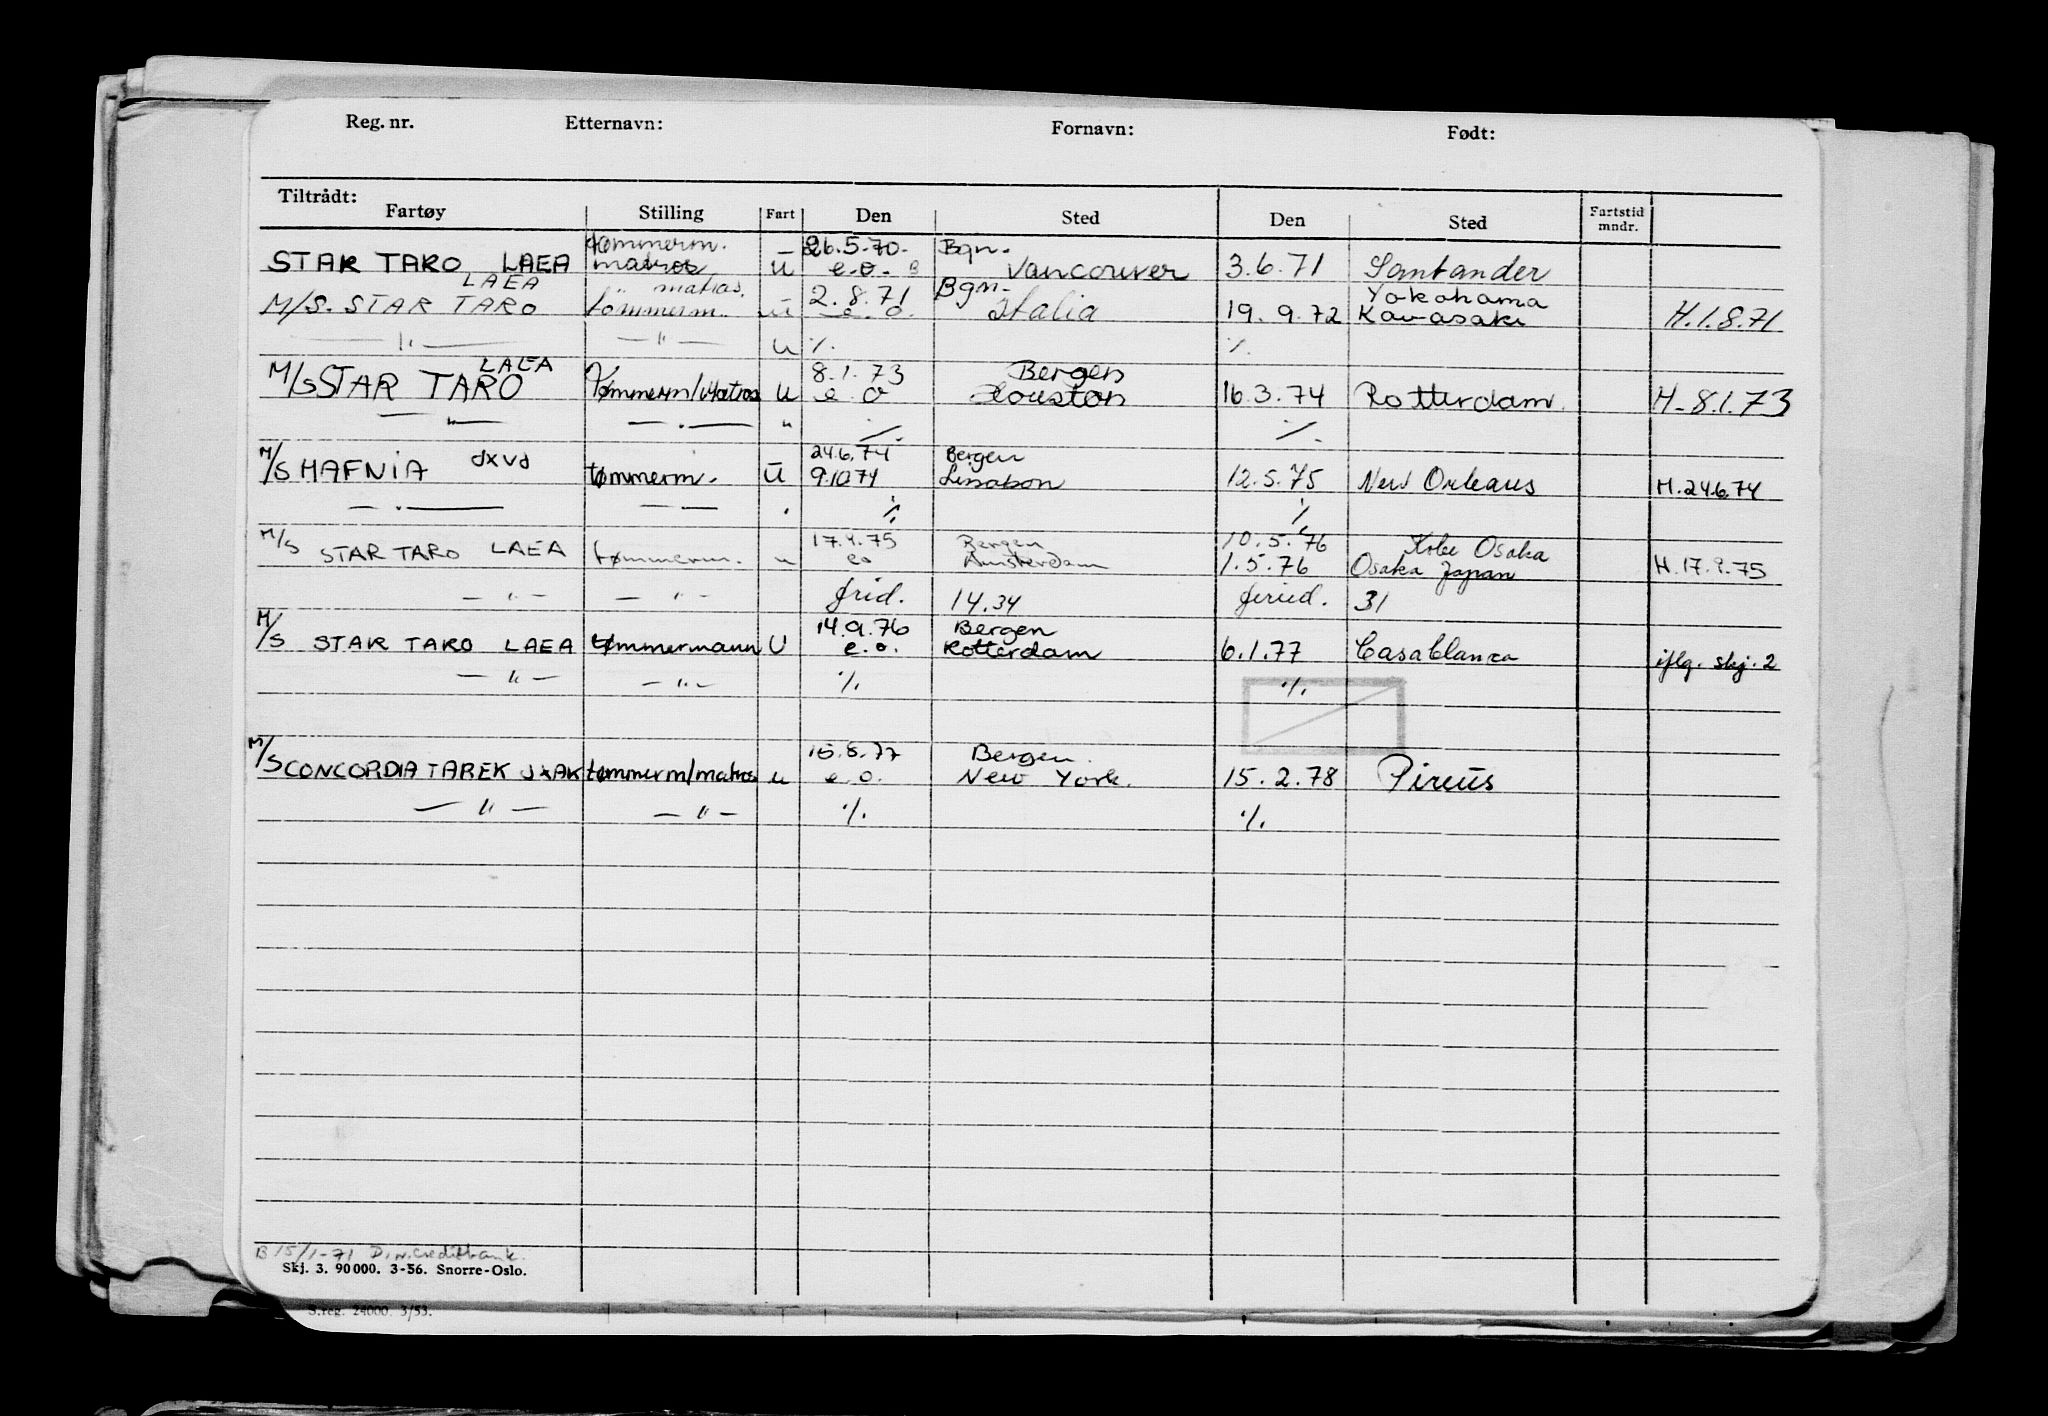 Reg. nr. Etternavn: Fornavn: Født:
Tiltrådt:
Fartøy Stilling Fart Den Sted Den Sted Fartstid mndr.
tømmerm. 26.5.70. Bgn.
STAR TARO LAEA matros U e.o. B Vancouver 3.6.71 Santander
LAEA " matros. 2.8.71 Bgn. Yokohama
M/S. STAR TARO tømmerm. u e.o. Italia 19.9.72 Kawasaki H.1.8.71
— " — — " — u ./. ./.
LAEA 8.1.73 Bergen
M/S STAR TARO Tømmerm/Matros U e.o Houston 16.3.74 Rotterdam. H-8.1.73
— " — — . — " ./. ./.
24.6.74 Bergen
M/S HAFNIA JXVJ tømmerm. U 9.10.74 Lissabon 12.5.75 New Orleans H.24.6.74
— . — — — . ./. ./.
17.9.75 Bergen 10.5.76 Kobe Osaka
M/S STAR TARO LAEA tømmerm. u eo Amsterdam 1.5.76 Osaka Japan H.17.9.75
— " — — " — frid. 14.34 31
14.9.76 Bergen
M/S STAR TARO LAEA tømmermann U e.o. Rotterdam 6.1.77 Casablanca iflg. skj. 2
— " — — " — ./. ./.
15.8.77 Bergen
M/S CONCORDIA TAREK JXAK tømmerm/matros u e.o. New York. 15.2.78 Pireus
— " — — " — ./. ./.
B 15/1-71 D.n.Creditbank.
Skj. 3. 90 000. 3-56. Snorre-Oslo.
S.reg. 24000. 3/53.